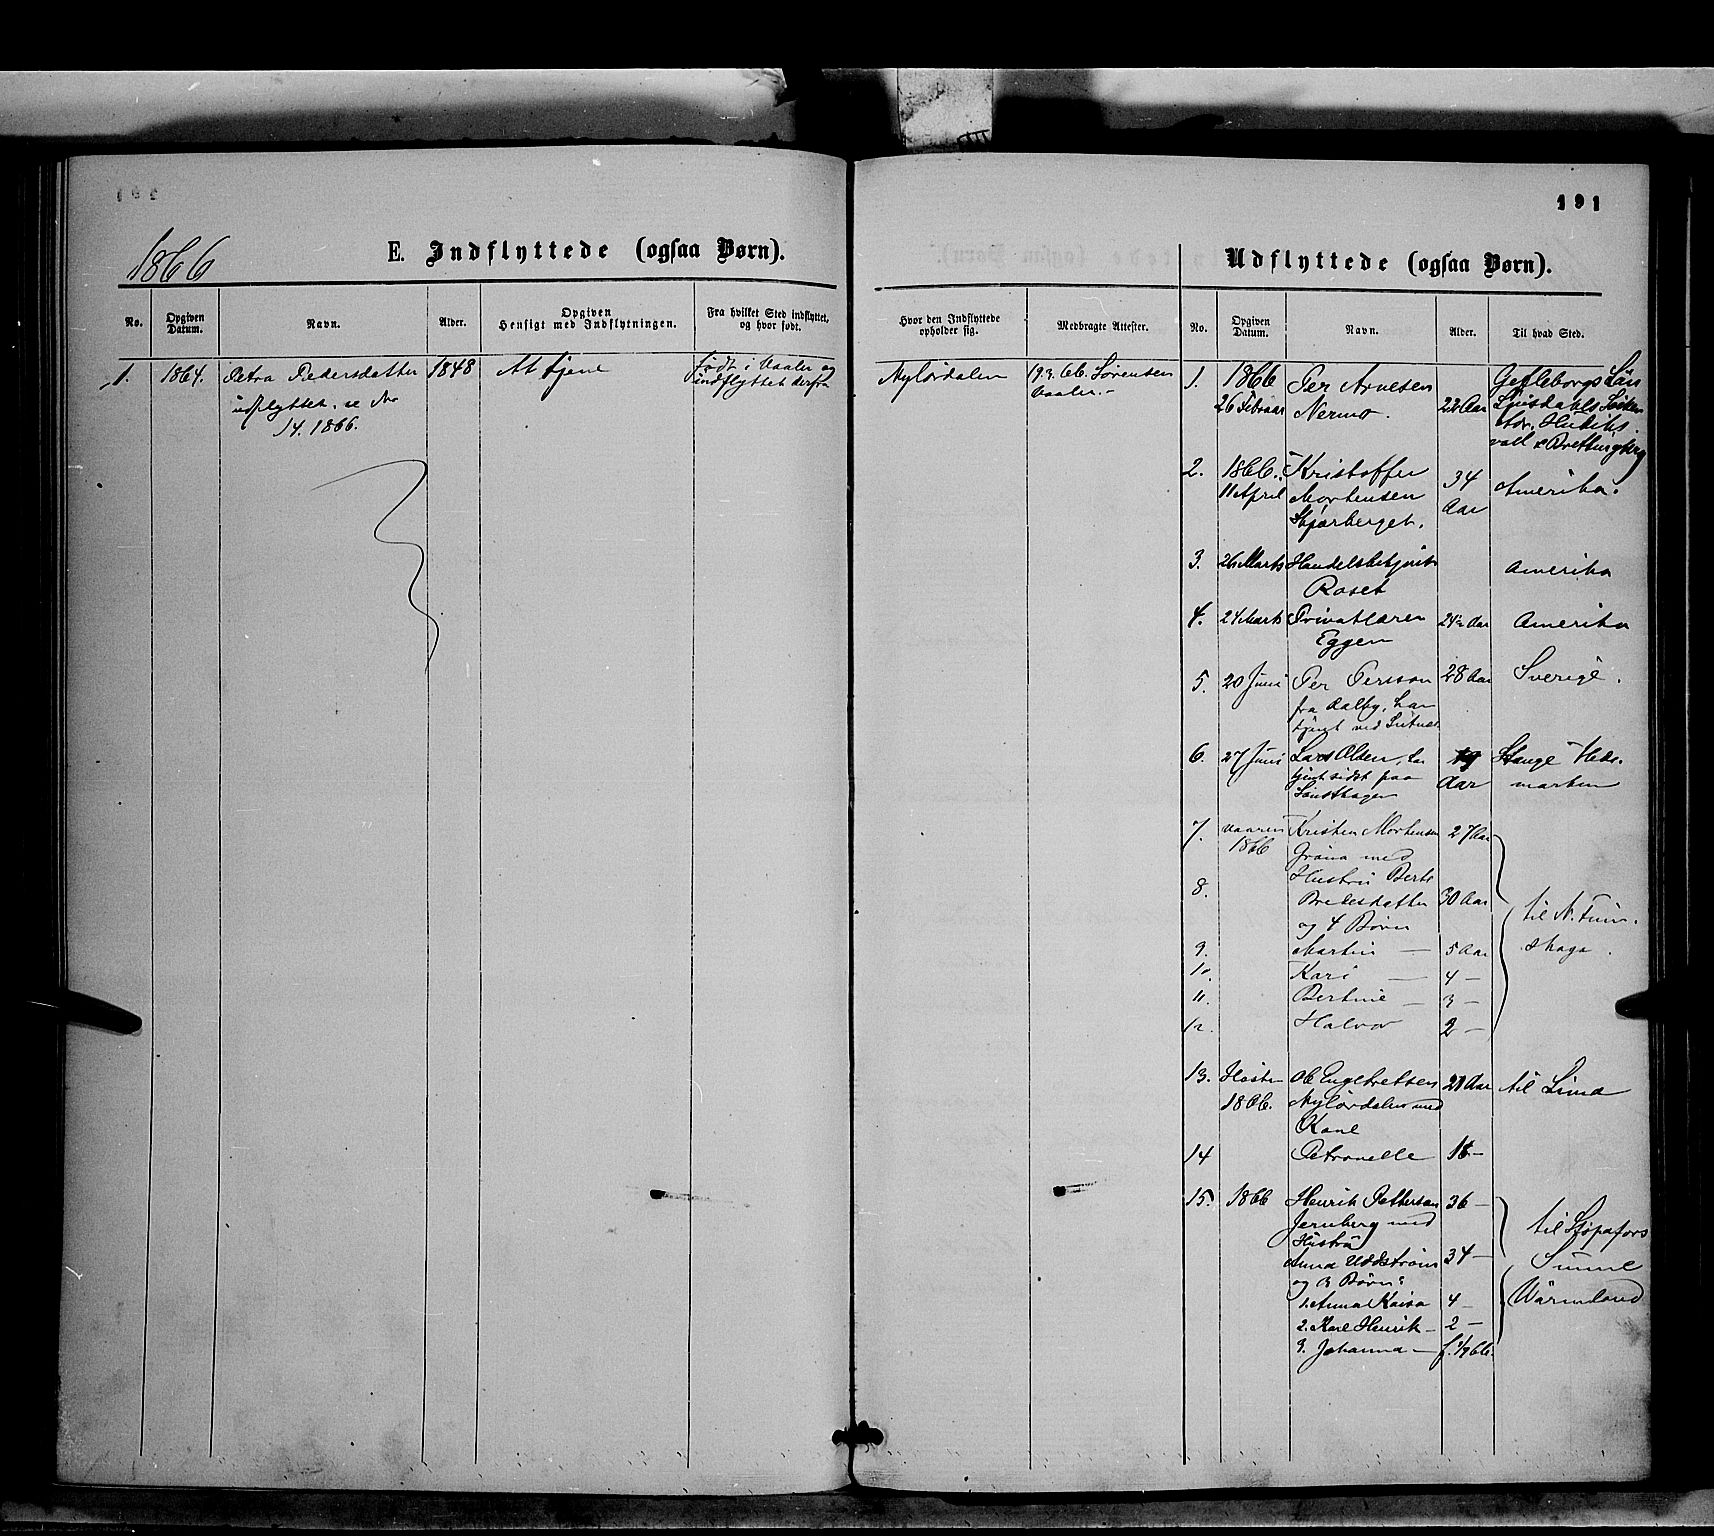 191
1866
E. Indflyttede (ogsaa Børn).
Udflyttede (ogsaa Børn).
No.
Opgiven Datum.
Navn.
Alder.
Opgiven Hensigt med Indflytningen.
Fra hvilket Sted indflyttet, og hvor født.
Hvor den Indflyttede opholder sig.
Medbragte Attester.
No.
Opgiven Datum.
Navn.
Alder.
Til hvad Sted.
1. 1864. Petra Pedersdatter 1848 At tjene født i Vaaler og
udflyttet, se No indflyttet derfra
14. 1866.
Nylördalen Sörensen
Vaaler.
1. 1866 Per Arnesen Gefleborgs Län
26 Februar Nermo. 22 Aar
2. 1866. Kristoffer 34 Amerika.
11 April Mortensen Aar
Skjærberget.
3. 26 Marts Amerika
Roset
4. 24 Marts Privatlærer 24½ Aar Amerika
Eggen
5. 20 Juni Per Persson 28 Aar Sverige.
fra Dalby, har
tjent ved
6. 27 Juni Lars Olsen, har 19 Stange Hede-
tjent sidst paa Aar marken
7. Vaaren Kristen Mortensen 27 Aar
1866 Gröna med
8. Hustru Berte
Bredesdatter 30 Aar til N. Finn-
og 4 Børn
9. Martin — 5 Aar skoga.
10. Kari — 4 —
11. Bertine — 3 —
12. Halvor 2 —
13. Høsten Ole Engebretsen 21 Aar til Lima
1866. Nylördalen med
Kone
14 Petronelle
15. 1866 Henrik Petterson 36 —
Jernberg med til
Hustru
Anna Uddström 34 — Sunne
og 3 Børn:
1. Anna Kaisa 4 — Wärmland
2. Karl Henrik — 2 —
3. Johanna — f. 1/9 66.